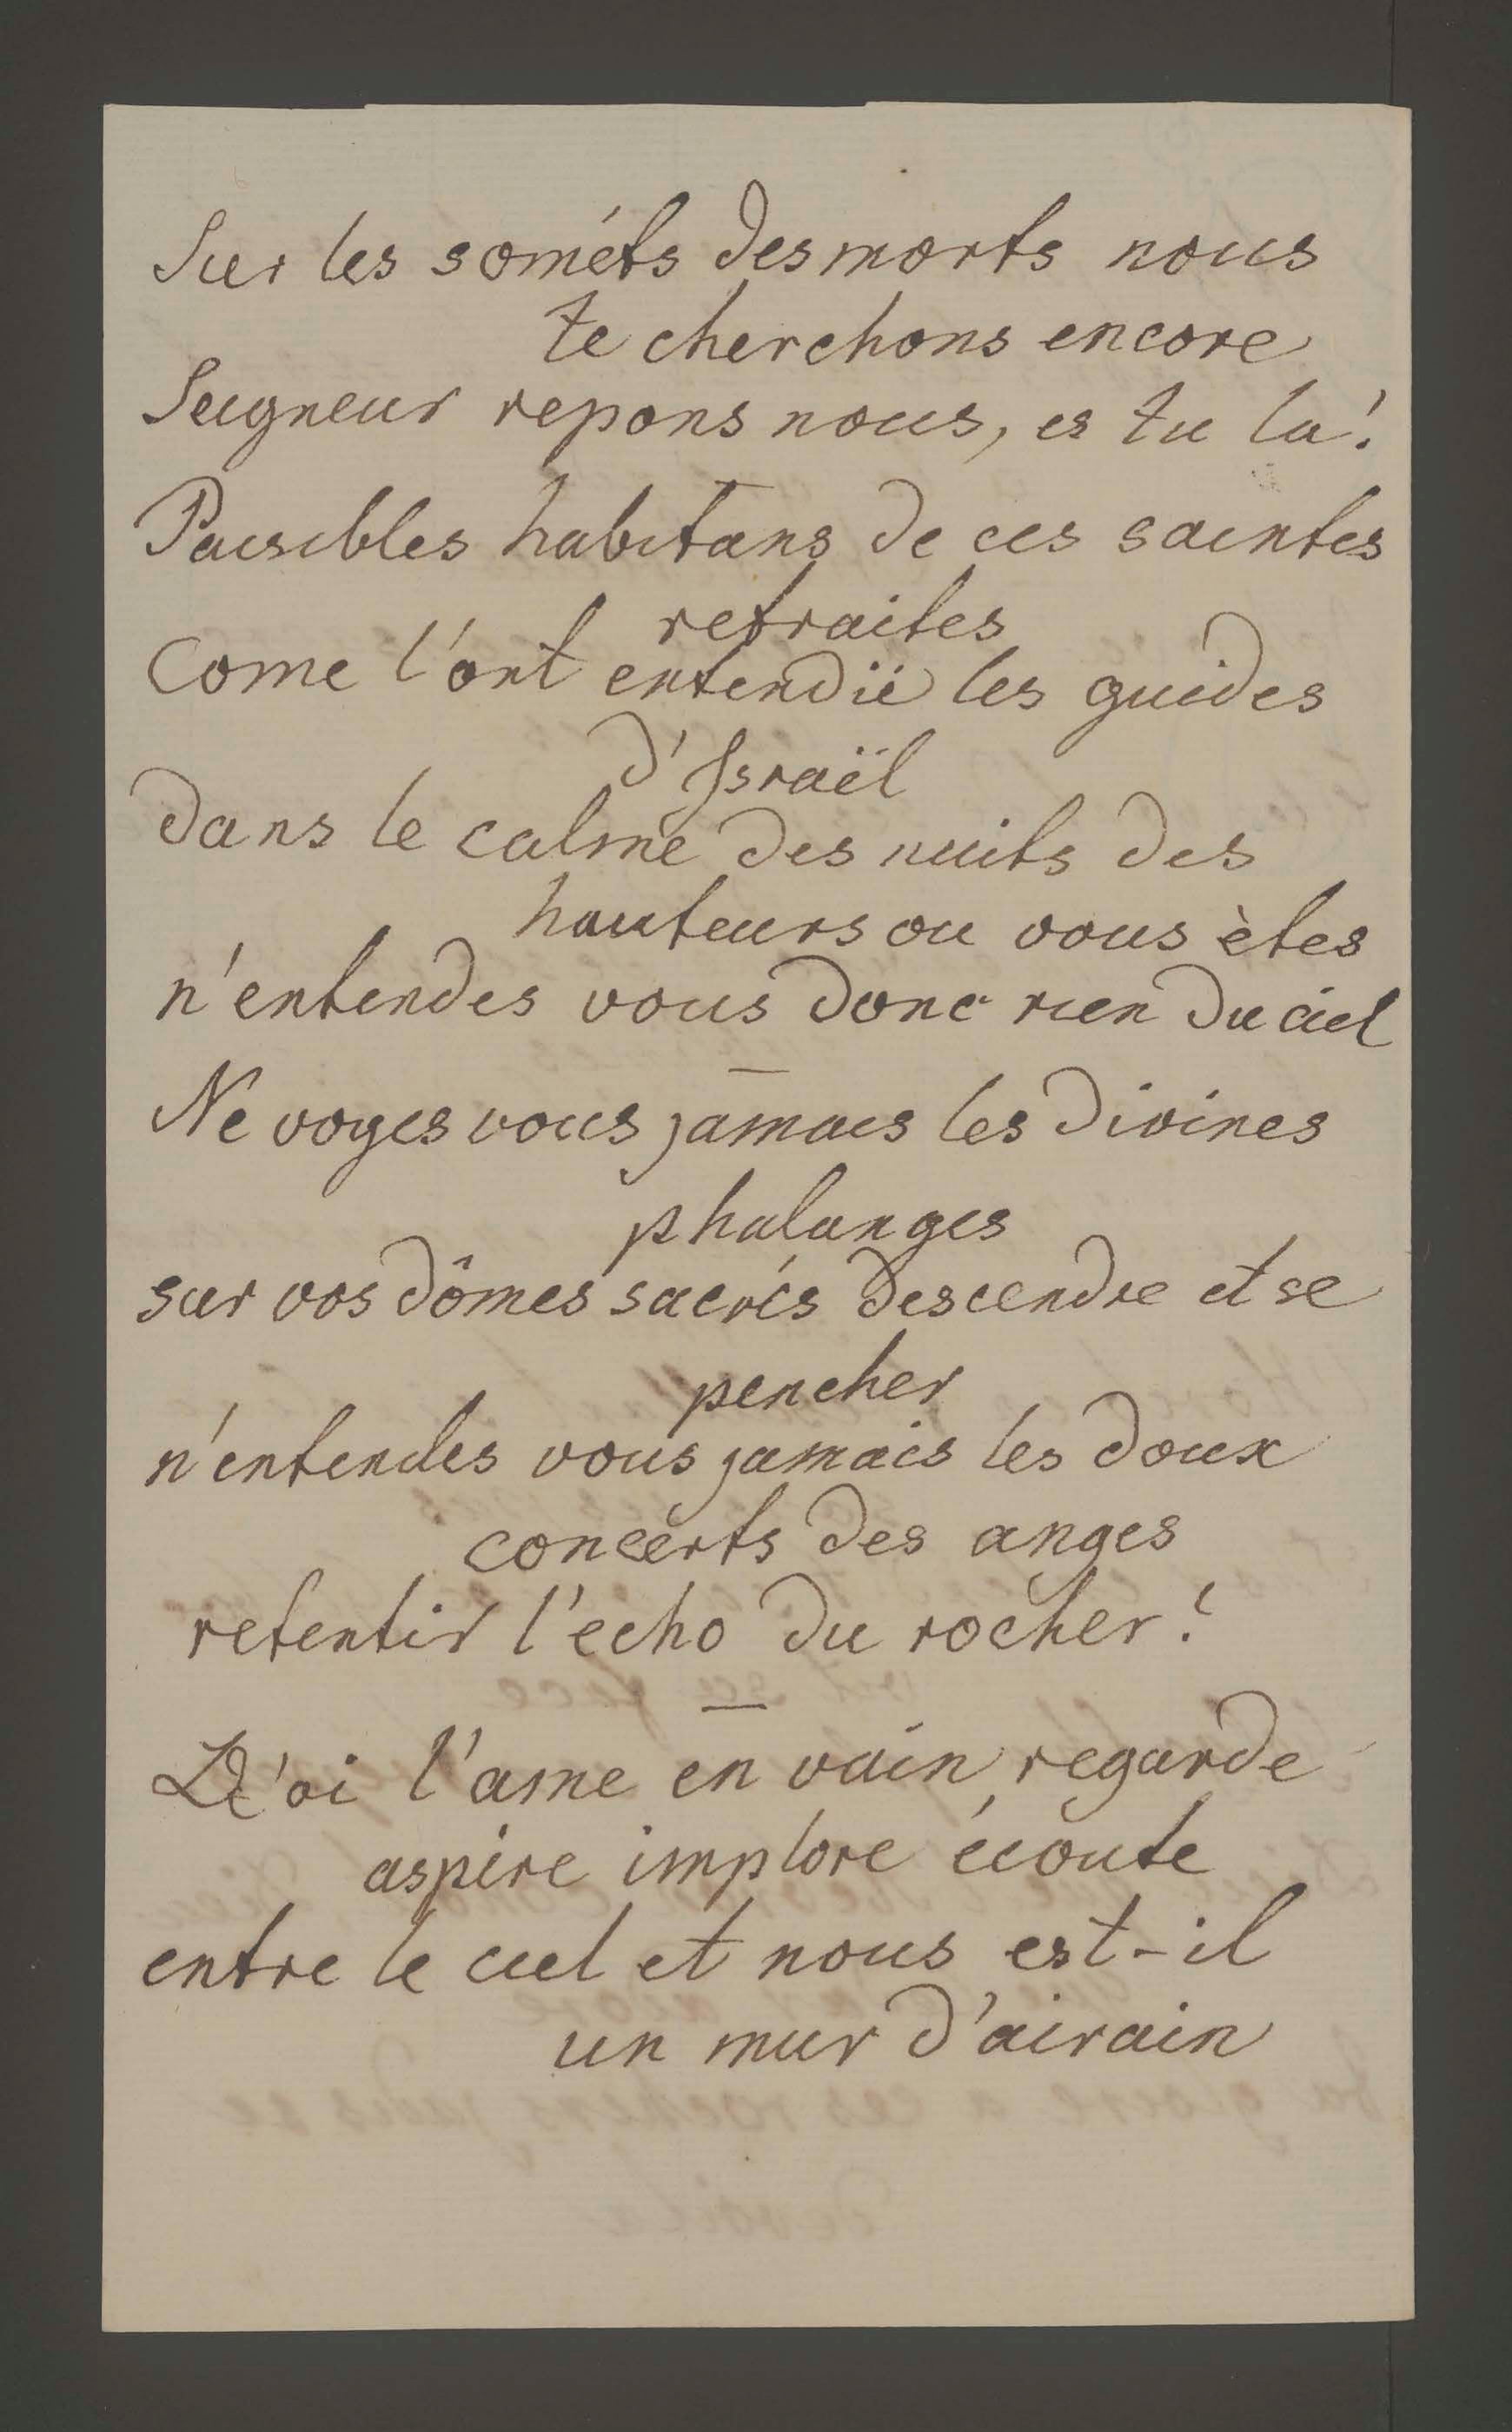 Sur les sométs des morts nous
te cherchons encore
Seigneur repons nous, es tu la?
Paisibles habitans de ces saintes
retraites
Come l'ont entendü les guides
d'Israël
dans le calme des nuits des
hauteurs ou vous ètes
n'entendes vous donc rien du ciel
—
Ne voyes vous jamais les divines
phalanges
sur vos dômes sacrés descendre et se
pencher
n'entendes vous jamais les doux
concerts des anges
retentir l'echo du rocher?
—
l'ame en vain regarde
aspire implore écoute
entre le ciel et nous est-il
un mur d'airain